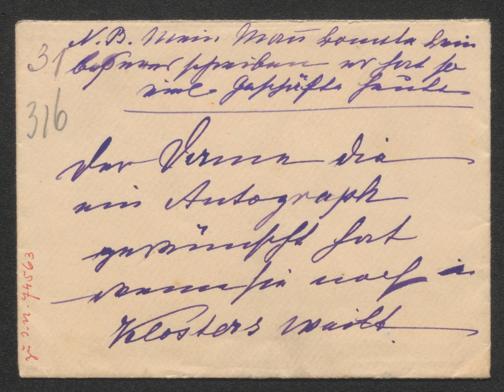 N. B. Mein Mann konnte kein
besseres schreiben er hat so
viel Geschäfte heute
31
316
Der Dame die
ein Autograph
gewünscht hat
wenn sie noch in
Klosters weilt
zu I.N. 74563